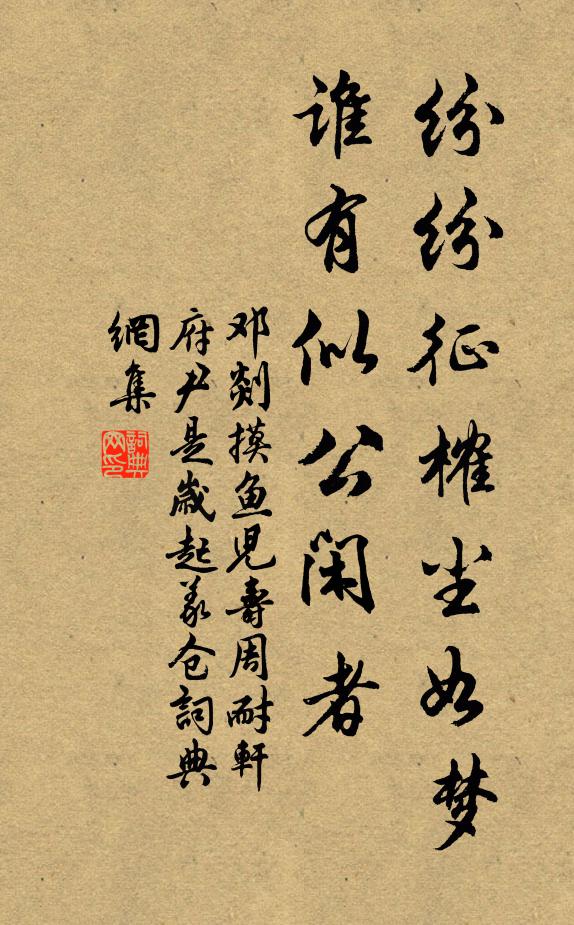 纷纷征榷尘如梦
谁有似公闲者
邓剡摸鱼儿寿周耐轩
府尹是岁起义仓词典
網集
詞典网印